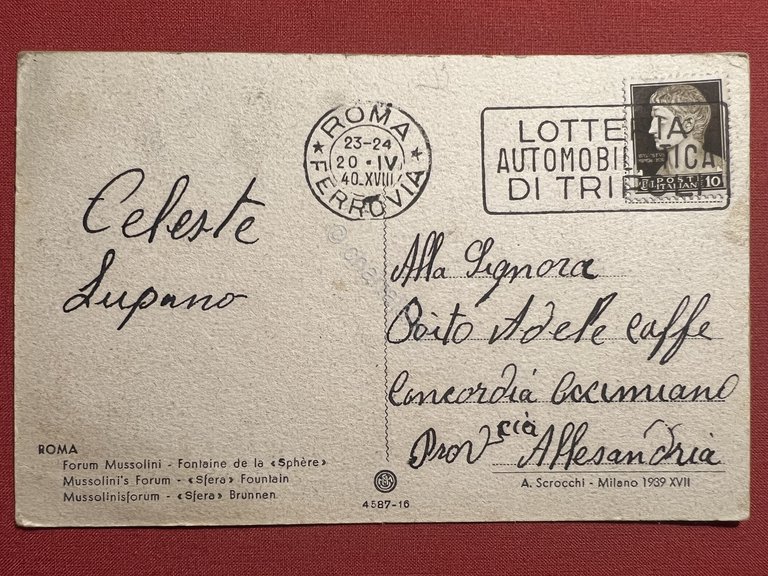 ROMA
23-24
20·IV
40.XVIII
FERROVIA
LOTTERIA
AUTOMOBILISTICA
DI TRIPOLI
POSTE
ITALIANE
10
Celeste
Lupano
Alla Signora
Adele Caffe
Concordia Occimiano
Prov cia Allesandria
ROMA
Forum Mussolini - Fontaine de la «Sphère»
Mussolini's Forum - «Sfera» Fountain
Mussolinisforum - «Sfera» Brunnen
4587-16
A. Scrocchi - Milano 1939 XVII